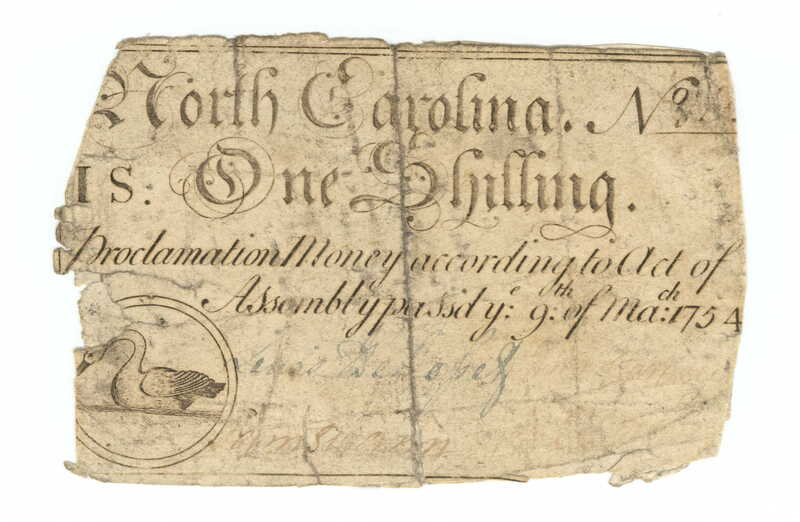 North Carolina. No
1S: One Shilling.
Proclamation Money according to Act of
Assembly pass'd ye: 9:th of Mach:1754